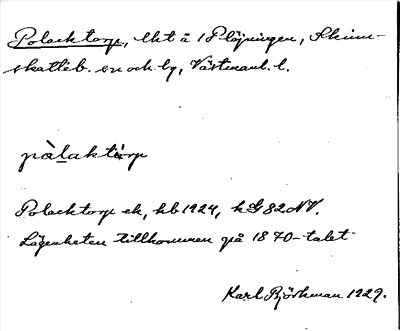 Polacktorp, lht å 1 Plöjningen, Skinn-
skatteb. sn och by, Västmanl. l.
pàlaktårp
Polacktorp ek, kb 1924, kG 82 NV.
Lägenheten tillkommen på 1870-talet
Karl Björkman 1929.